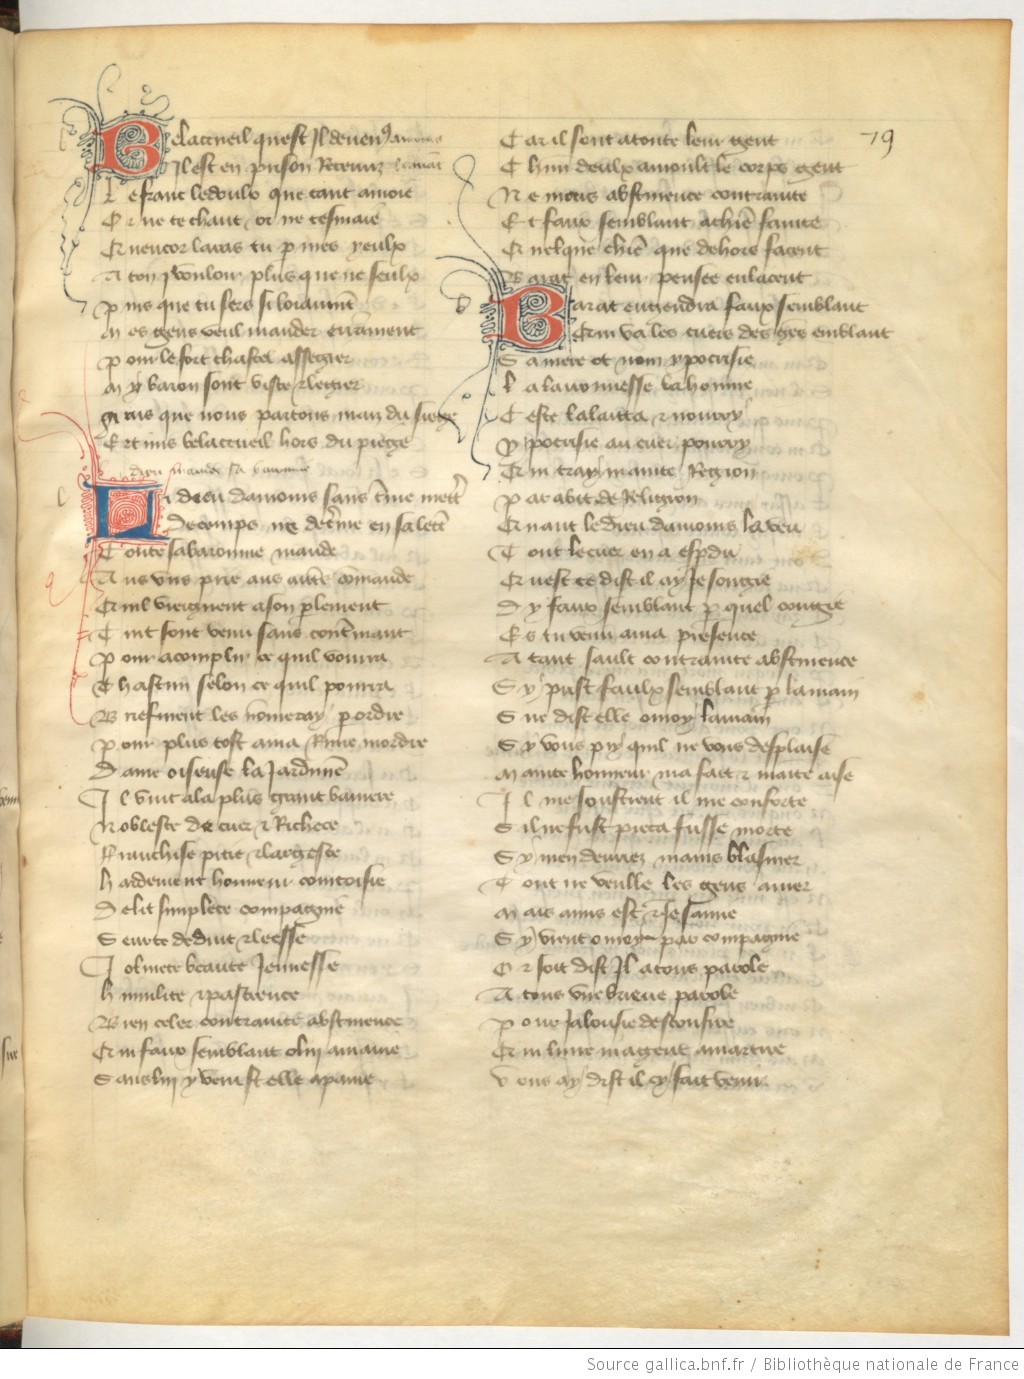 79
Belaccueil quest Il deuenu amours
Il est en prison Retenuz lamant
Le franc le doulx que tant amoie
Or ne te chaut or ne tesmaie
Encor lauras tu
A ton vouloir plus que ne seulx
Puis que tu sers si loiaument
Mes gens veul mander
Pour le fort chastel assegier
baron sont viste et legier
que nous partons mau du siege
Ert mis belaccueil hors du piege
dieu mande sa baronnie
Li dieu damours sans
De temps ne en sa
Toute sa baronnie mande
Aus vns prie aus autres commande
Quil viengnent a son parlement
Tuit sont venu sans
Pour acomplir ce quil vourra
Chascun selon ce quil pourra
Briefment les nomeray par ordre
Pour plus tost a ma Rime mordre
Dame oiseuse la Jardiniere
Il vint a la plus grant baniere
Noblesce de cuer et Richece
Franchise pitie et largesce
Hardement honneur courtoisie
Delit simplece compagnie
Seurte deduit et leesse
Joliuete beaute Jeunesse
Humilite et pascience
Bien celer contrainte abstinence
Qui faux semblant o lui amaine
Sans lui y venist elle a paine
Car il sont a toute leur gent
Chun deulx a moult le corps gent
Ne mais abstinence contrainte
Et faux semblant a chiere fainte
Quelque chiere que dehors facent
Barat en leur pensee enlacent
Barat engendra faux semblant
Qui va les cuers des gens emblant
Sa mere ot nom ypocrisie
La larronnesse la honnie
Ceste lalaitta et nourry
Lypocrisie au cuer pourry
Qui tray mainte Region
Par abit de Religion
Quant le dieu damours la veu
Tout le cuer en a
Quest ce dist il ay Je songie
Dy faux semblant par quel congie
Es tu venu a ma presence
A tant sault contrainte abstinence
Sy prist faulx semblant par la main
Sire dist elle o moy lamain
Sy vous pry quil ne vous desplaise
Mainte honneur ma fait et mainte aise
Il me soustient il me conforte
Sil ne fust pieca fusse morte
Sy men deuriez mains blasmer
Tout ne veulle les gens amer
Mais amis est et Je lamie
Sy vient o moy par compagnie
Or soit dist Il a tous parole
A tous vne brieue parole
Pour Jalousie desconfire
Qui lui nagent a martire
Vous ay dist il cy fait venir